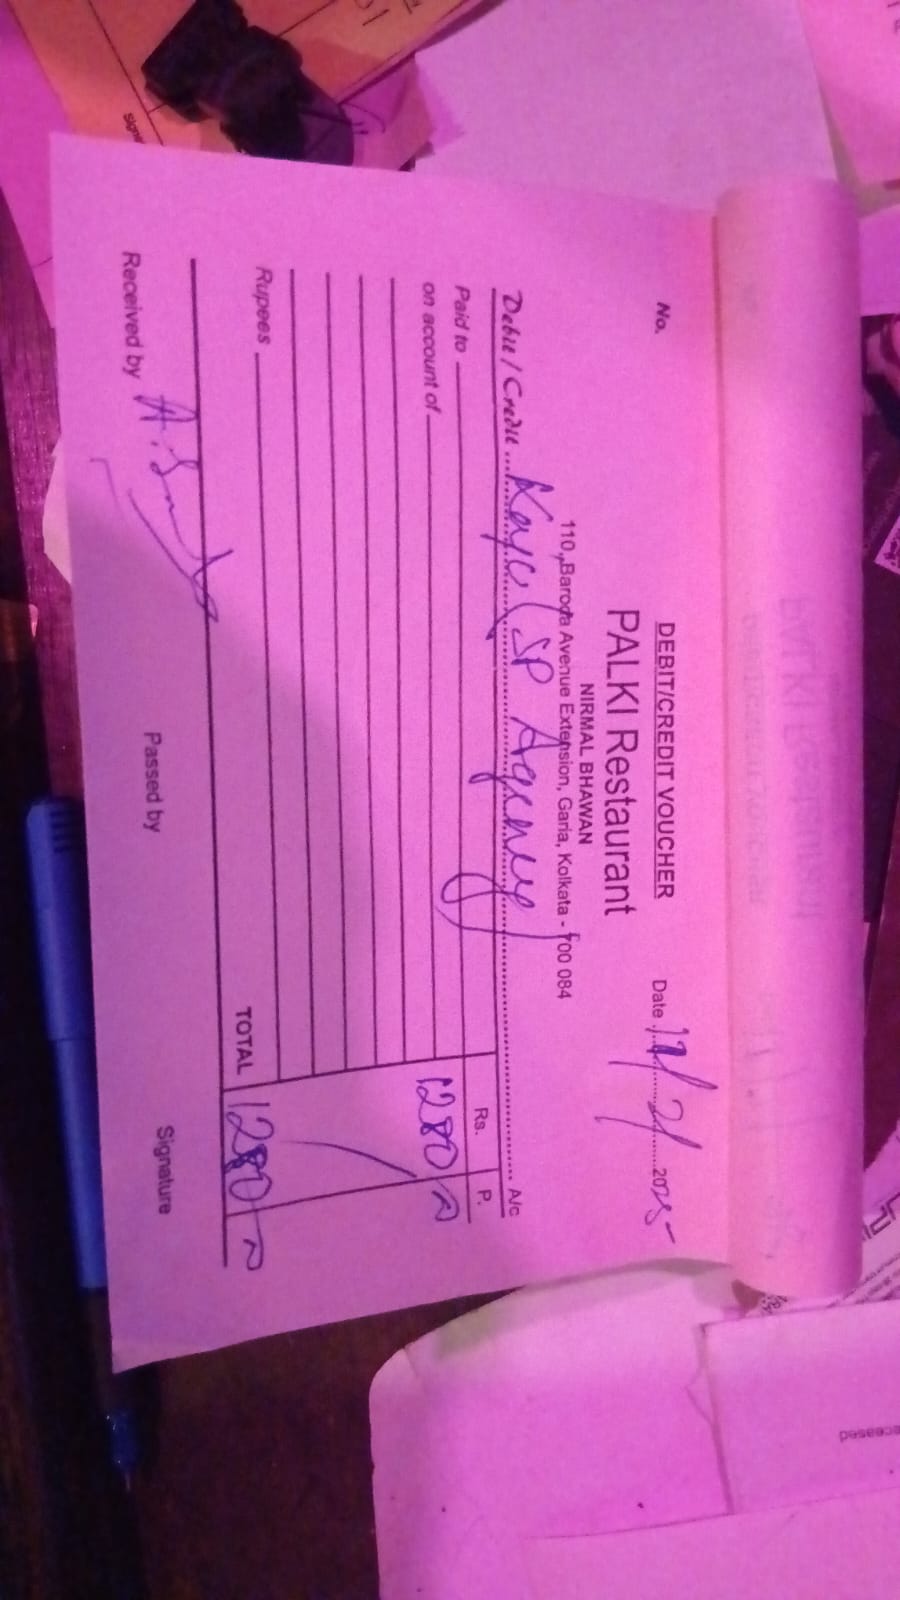 DEBIT/CREDIT VOUCHER
No.
Date 12/2/2025
PALKI Restaurant
NIRMAL BHAWAN
110, Baroda Avenue Extension, Garia, Kolkata - 700 084
Debit / Credit ... (SP Agency) A/c
Rs. P.
Paid to 1280
on account of
Rupees
TOTAL 1280
Received by
Passed by
Signature
eceased